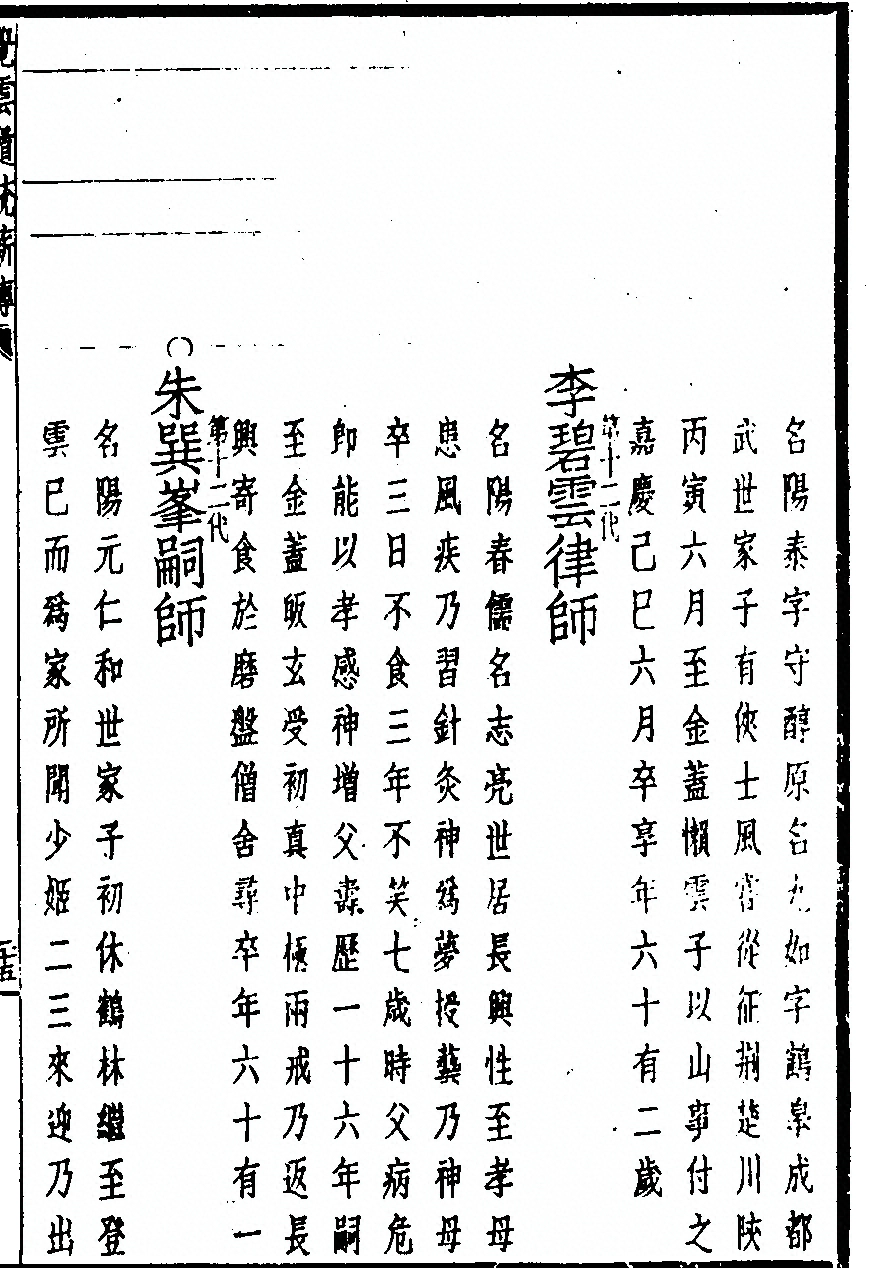 名陽泰字守醇原名九如字鶴皋成都
武世家子有俠士風嘗從征荆楚川陝
丙寅六月至金蓋懶雲子以山事付之
嘉慶己巳六月卒享年六十有二歲
第十二代
李碧雲律師
名陽春儒名志亮世居長興性至孝母
患風疾乃習針灸神爲夢授藝乃神母
卒三日不食三年不笑七歲時父病危
卽能以孝感神增父壽歷一十六年嗣
至金蓋皈玄受初真中極兩戒乃返長
興寄食於磨盤僧舍尋卒年六十有一
第十二代
朱巽峯嗣師
名陽元仁和世家子初休鶴林繼至登
雲巳而爲家所聞少姬二三來迎乃出
覺雲道統薪傳